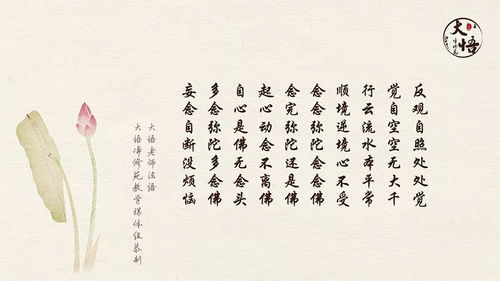 大悟
反观自照处处觉
觉自空空无大千
行云流水本平常
顺境逆境心不受
念念弥陀念念佛
念完弥陀还是佛
起心动念不离佛
自心是佛无念头
多念弥陀多念佛
妄念自断没烦恼
大悟老师法语
大悟禅修苑教学媒体组恭制